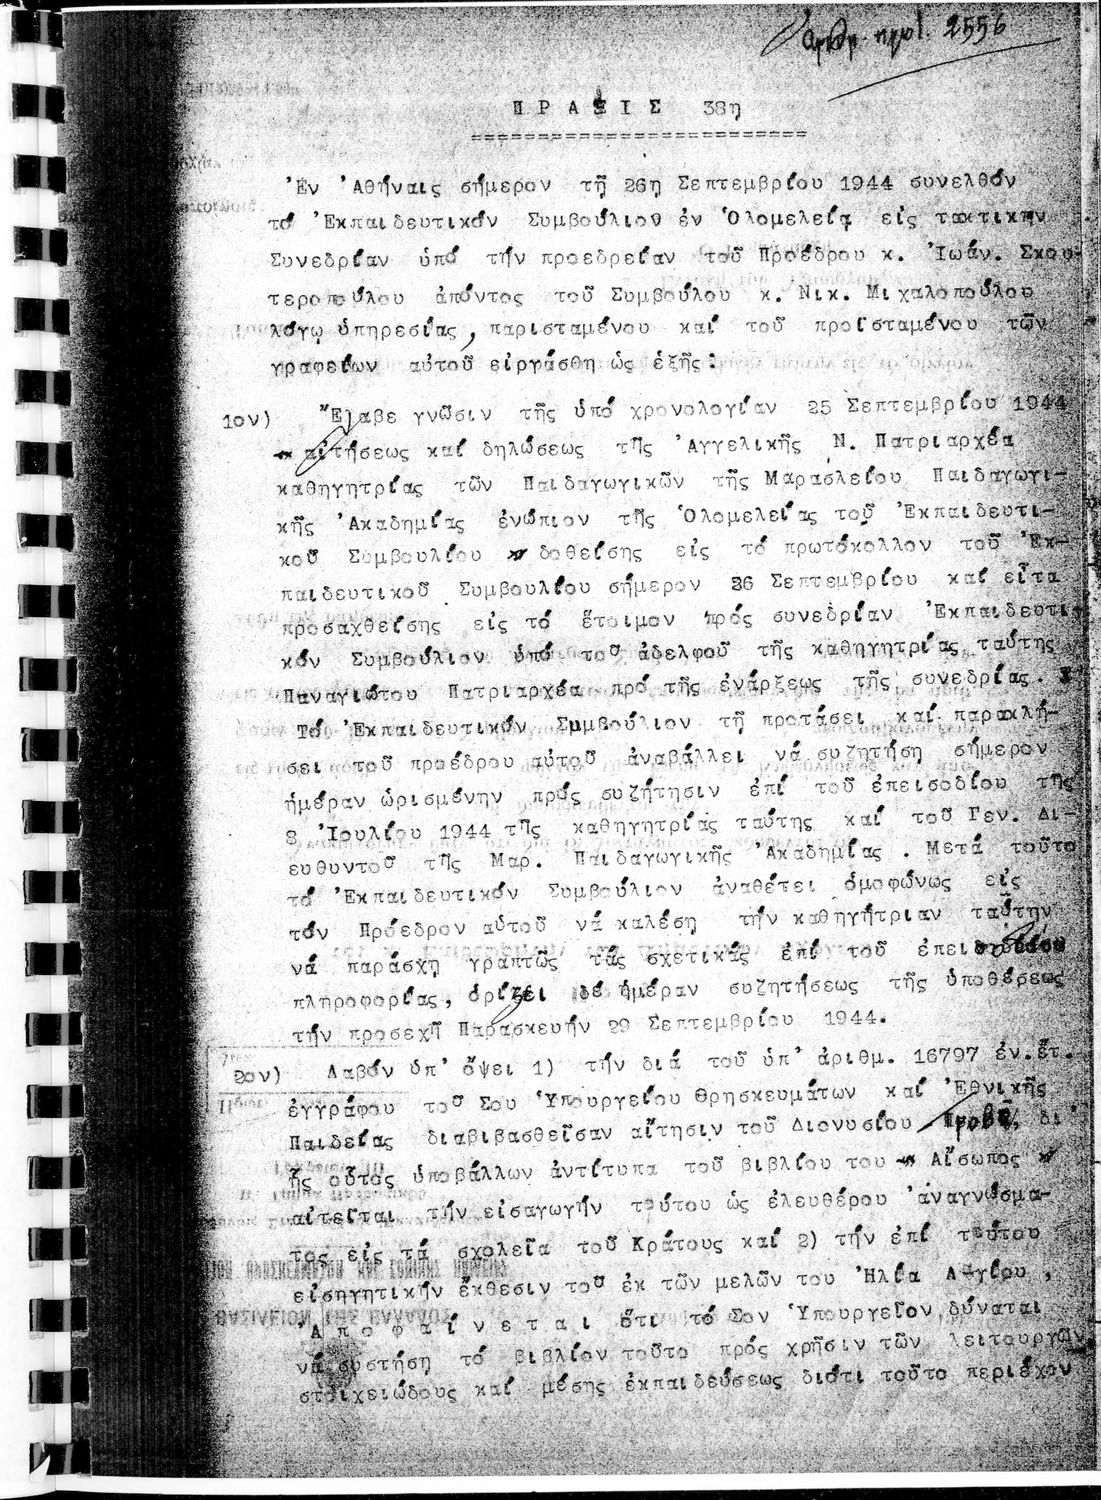 ἀριθμ. πρωτ. 2556
ΠΡΑΞΙΣ 38η
Ἐν Ἀθήναις σήμερον τῇ 26η Σεπτεμβρίου 1944 συνελθόν
τό Ἐκπαιδευτικόν Συμβούλιον ἐν Ὁλομελείᾳ εἰς τακτικήν
Συνεδρίαν ὑπό τήν προεδρείαν τοῦ Προέδρου κ. Ἰωάν. Σκου-
τεροπούλου ἀπόντος τοῦ Συμβούλου κ. Νικ. Μιχαλοπούλου
λόγῳ ὑπηρεσίας, παρισταμένου καί τοῦ προϊσταμένου τῶν
γραφείων αὐτοῦ εἰργάσθη ὡς ἑξῆς:
1ον) Ἔλαβε γνῶσιν τῆς ὑπό χρονολογίαν 25 Σεπτεμβρίου 1944
αἰτήσεως καί δηλώσεως τῆς Ἀγγελικῆς Ν. Πατριαρχέα
καθηγητρίας τῶν Παιδαγωγικῶν τῆς Μαρασλείου Παιδαγωγι-
κῆς Ἀκαδημίας ἐνώπιον τῆς Ὁλομελείας τοῦ Ἐκπαιδευτι-
κοῦ Συμβουλίου δοθείσης εἰς τό πρωτόκολλον τοῦ Ἐκ-
παιδευτικοῦ Συμβουλίου σήμερον 26 Σεπτεμβρίου καί εἶτα
προσαχθείσης εἰς τό ἕτοιμον πρός συνεδρίαν Ἐκπαιδευτι-
κόν Συμβούλιον ὑπό τοῦ ἀδελφοῦ τῆς καθηγητρίας ταύτης
Παναγιώτου Πατριαρχέα πρό τῆς ἐνάρξεως τῆς συνεδρίας.
Τό Ἐκπαιδευτικόν Συμβούλιον τῇ προτάσει καί παρακλή-
σει τοῦ προέδρου αὐτοῦ ἀναβάλλει νά συζητήση σήμερον
ἡμέραν ὡρισμένην πρός συζήτησιν ἐπί τοῦ ἐπεισοδίου τῆς
8 Ἰουλίου 1944 τῆς καθηγητρίας ταύτης καί τοῦ Γεν. Δι-
ευθυντοῦ τῆς Μαρ. Παιδαγωγικῆς Ἀκαδημίας . Μετά τοῦτο
τό Ἐκπαιδευτικόν Συμβούλιον ἀναθέτει ὁμοφώνως εἰς
τόν Πρόεδρον αὐτοῦ νά καλέση τήν καθηγήτριαν ταύτην
νά παράσχῃ γραπτῶς τάς σχετικάς ἐπί τοῦ ἐπεισοδίου
πληροφορίας, ὁρίζει δέ ἡμέραν συζητήσεως τῆς ὑποθέσεως
τήν προσεχῆ Παρασκευήν 29 Σεπτεμβρίου 1944.
2ον) Λαβόν ὑπ' ὄψει 1) τήν διά τοῦ ὑπ' ἀριθμ. 16797 ἐν.ἔτ.
ἐγγράφου τοῦ Σου Ὑπουργείου Θρησκευμάτων καί Ἐθνικῆς
Παιδείας διαβιβασθεῖσαν αἴτησιν τοῦ Διονυσίου δι'
ἧς οὗτος ὑποβάλλων ἀντίτυπα τοῦ βιβλίου του " Αἴσωπος "
αἰτεῖται τήν εἰσαγωγήν τούτου ὡς ἐλευθέρου ἀναγνώσμα-
τος εἰς τά σχολεῖα τοῦ Κράτους καί 2) τήν ἐπί τούτου
εἰσηγητικήν ἔκθεσιν τοῦ ἐκ τῶν μελῶν του Ἠλία Λαγίου ,
Ἀποφαίνεται ὅτι τό Σον Ὑπουργεῖον δύναται
νά συστήση τό βιβλίον τοῦτο πρός χρῆσιν τῶν λειτουργῶν
στοιχειώδους καί μέσης ἐκπαιδεύσεως διότι τοῦτο περιέχον